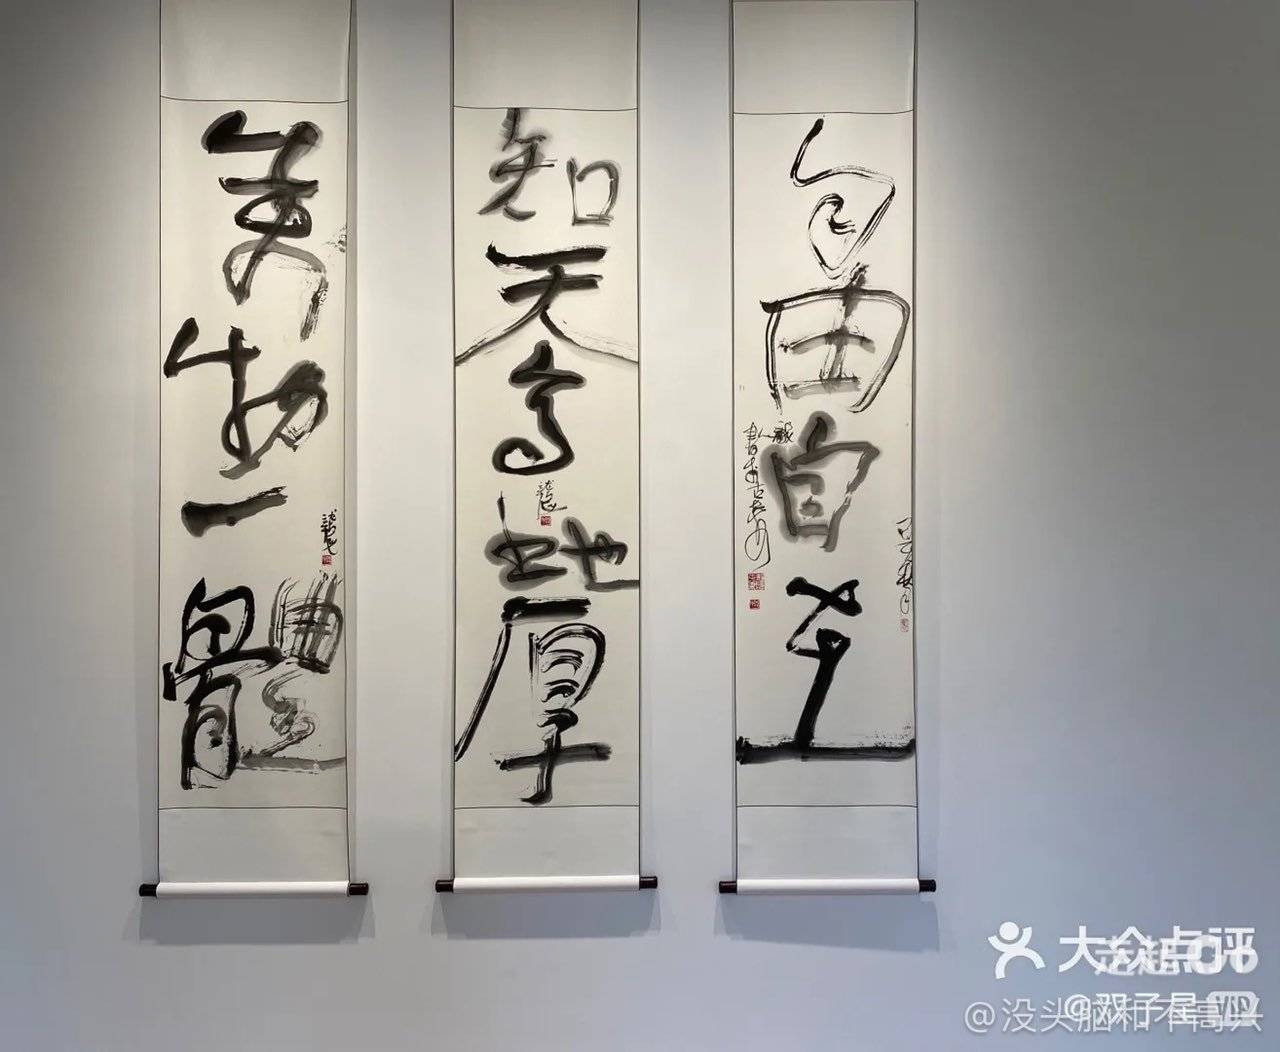 自由自在
知天高地厚
萬物一體
大众点评
@没头脑和不高兴